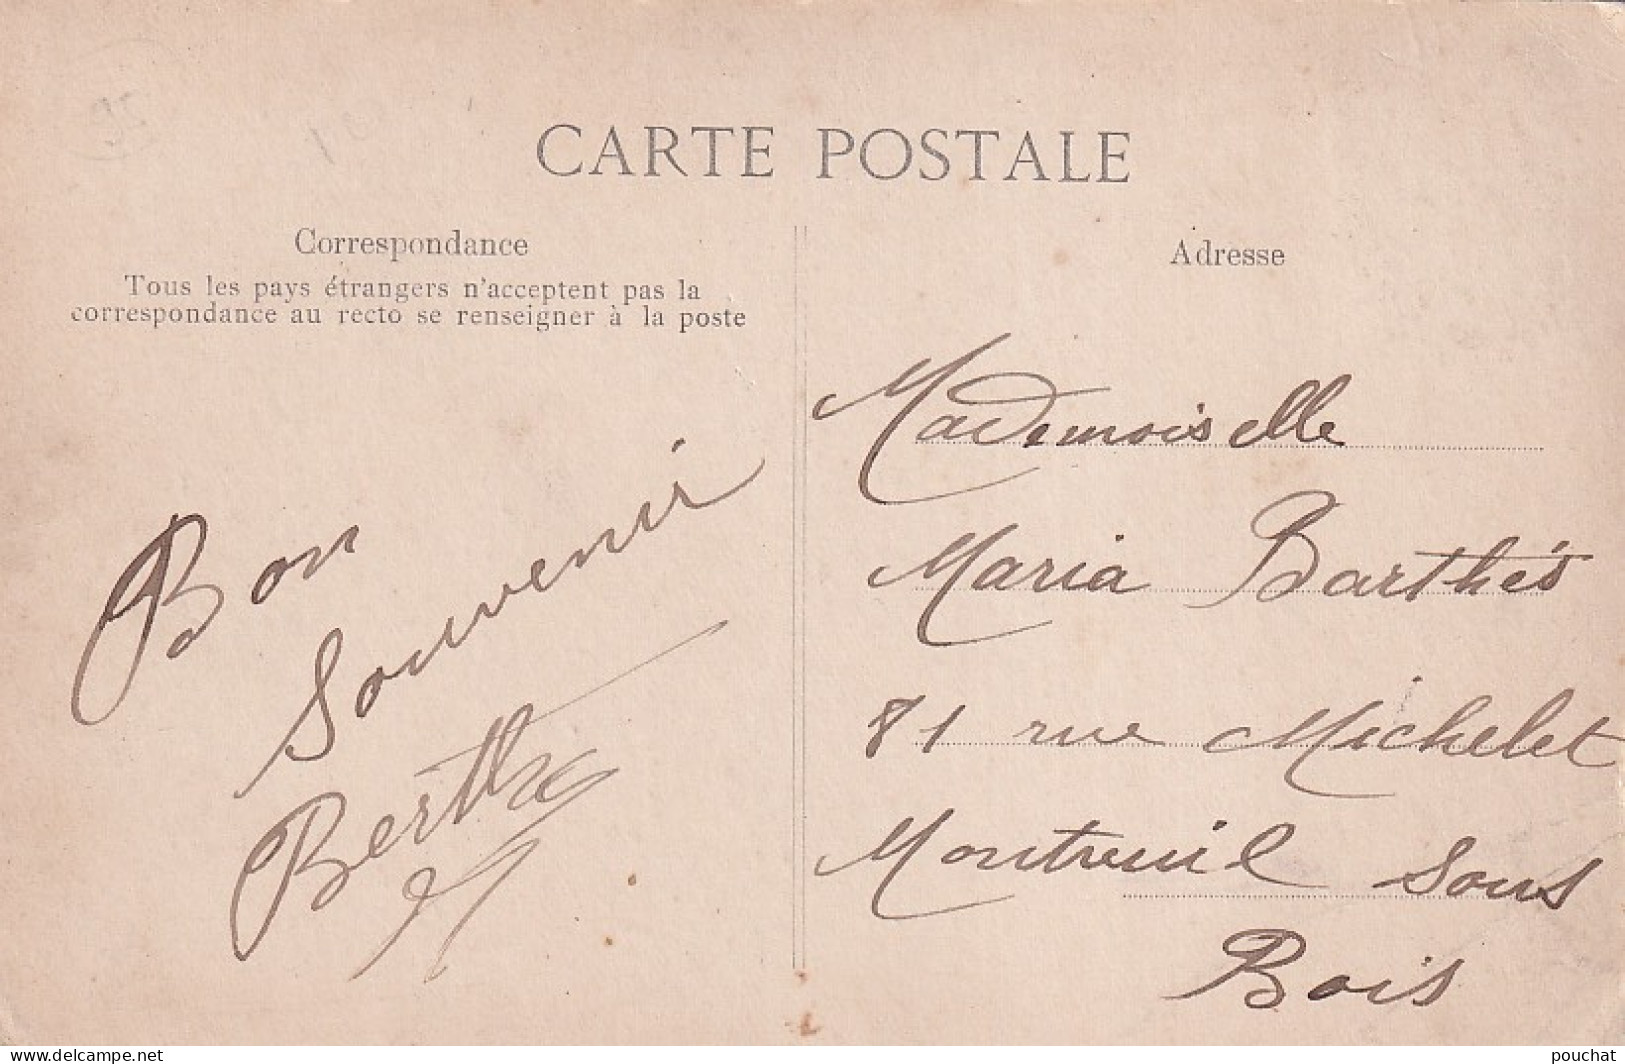 CARTE POSTALE
Correspondance
Tous les pays étrangers n'acceptent pas la
correspondance au recto se renseigner à la poste
Bon
Souvenir
Berthe
Adresse
Mademoiselle
Maria Barthés
81 rue Michelet
Montreuil sous
Bois
https://www.delcampe.net
pouchat